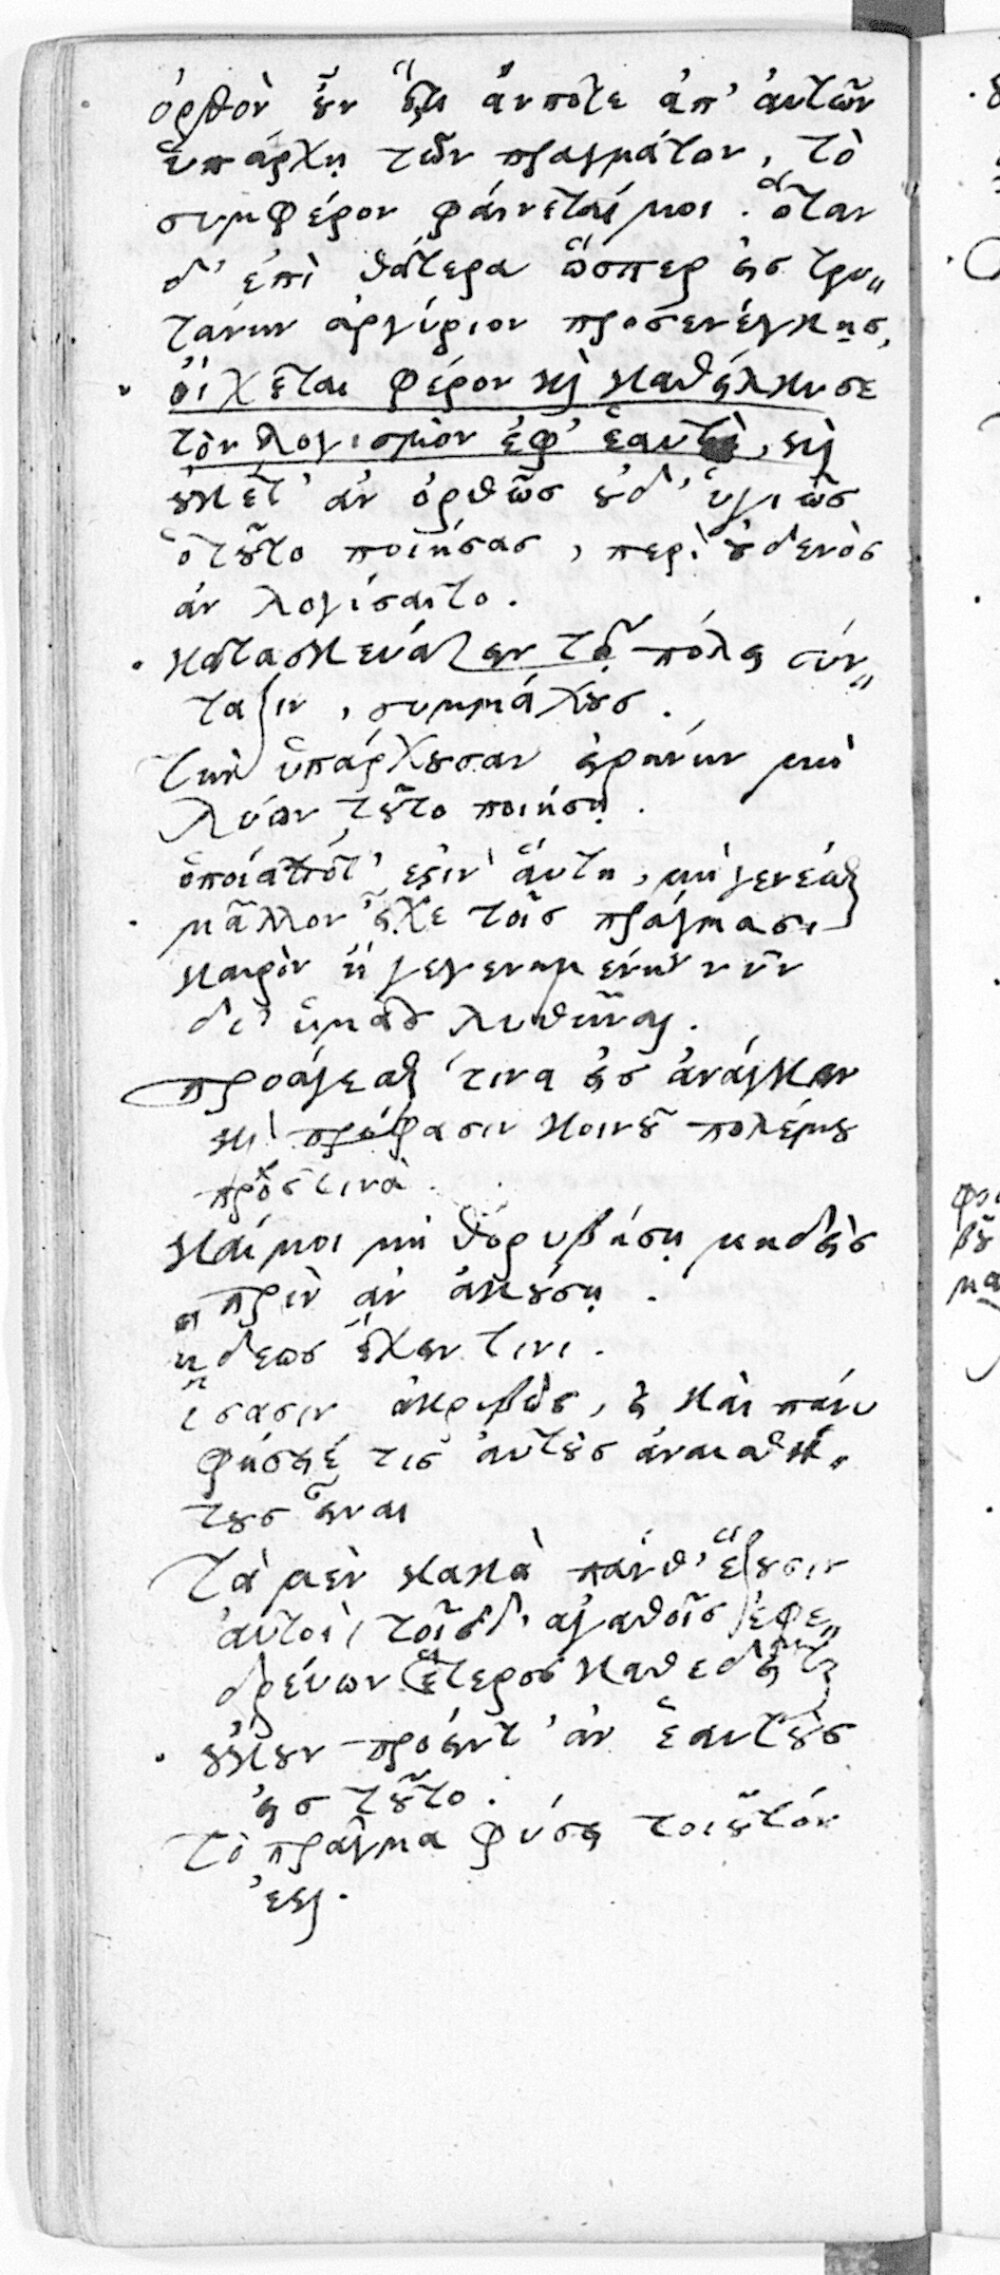 ὀρθὸν ȣ̓ν ὅ,τι ἄνποτε ἀπ' ἀυτῶν
ὑπάρχῃ τῶν πραγμάτον, τὸ
συμφέρον φάινεταί μοι. ὅταν
δ' ἐπὶ θάτερα ὥσπερ εἰς τρυ„
τάνην ἀργύριον προσενέγκῃς,
ὀίχεται φέρον καὶ καθέλκυσε
τὸν λογισμὸν ἐφ' ἑαυτὸ, καὶ
ȣ̓κέτ' ἀν ὀρθῶς ȣ̓δ' ὑγιῶς
ὁ τȣ͂το ποιήσας, περὶ ȣ̓δενὸς
ἀν λογίσαιτο.
κατασκευάζειν τῇ πόλει σύν„
ταξιν, συμμάχȣς.
τὴν ὑπάρχȣσαν εἰρήνην μὴ
λύων τȣ͂το ποιήσῃ.
ὁποίαποτ' ἐϛὶν ἅυτη, μὴ γενέσθαι
μᾶλλον εἶχε τοῖς πράγμασι
καιρὸν ἢ γεγενημένην νῦν
δι' ὑμᾶς λυθῆναι.
προάγεσθαι τινα εἰς ἀνάγκην
καὶ πρόφασιν κοινȣ͂ πολέμȣ
πρὸς τινὰ.
κάι μοι μὴ θορυβήσῃ μηδεὶς
πρὶν ἀν ἀκȣ́σῃ.
ἡδεως ἔχειν τινι.
ἴσασιν ἀκριβῶς, εἰ κὰι πάνυ
φήσειέ τις ἀυτȣ̀ς ἀναισθή„
τȣς εἶναι
Τὰ μὲν κακὰ πάνθ' ἕξȣσιν
ἀυτοὶ, τοῖς δ' ἀγαθοῖς ἐφε„
δρέυων ἕτερος καθεδεῖται
ȣ̓́κȣν πρόειντ' ἀν ἑαυτȣ̀ς
εἰς τȣ͂το.
Τὸ πρᾶγμα φύσει τοιȣ͂τόν
ἐϛι.